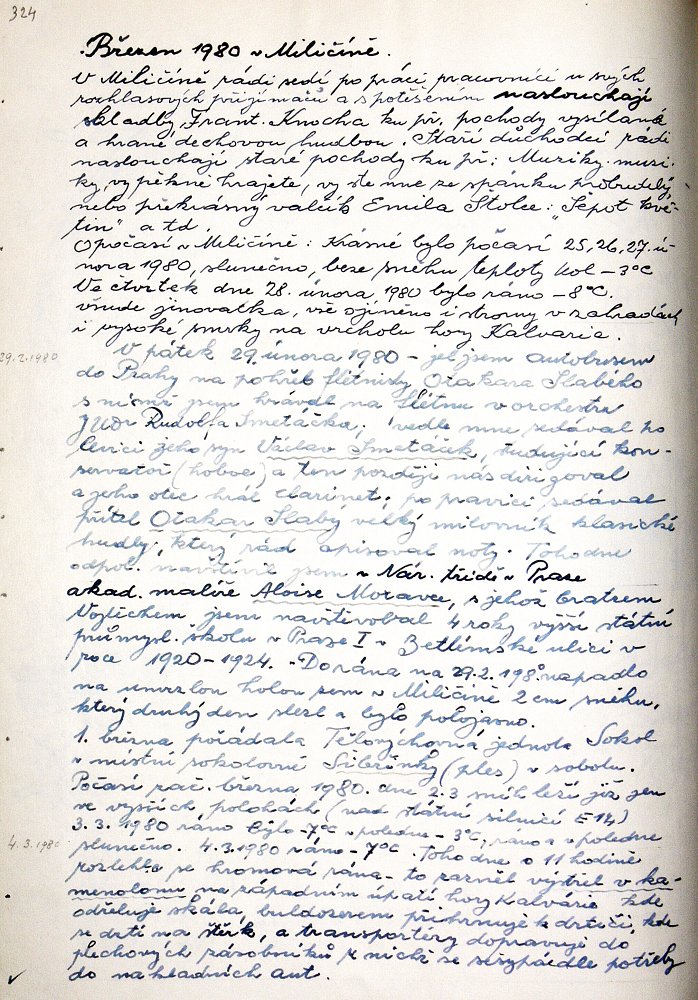 324
Březen 1980 v Miličíně.
V Miličíně rádi sedí po práci pracovníci u svých
rozhlasových přijímačů a s potěšením naslouchají
skladby, Frant. Kmocha ku př. pochody vysílané
a hrané dechovou hudbou. Staří důchodci rádi
naslouchají staré pochody ku př.: Muziky, muzi-
ky, vy pěkně hrajete, vy ste mne ze spánku probudily,
nebo překrásný valčík Emila Štolce: „Šepot kvě-
tin" a td.
O počasí v Miličíně: Krásné bylo počasí 25, 26, 27. ú-
nora 1980, slunečno, beze sněhu teploty kol -3°C
Ve čtvrtek dne 28. února, 1980 bylo ráno -8°C.
všude jinovatka, vše ojíněno i stromy v zahradách
i vysoké smrky na vrcholu hory Kalvarie.
29.2.1980
V pátek 29. února 1980 - jel jsem autobusem
do Prahy na pohřeb flétnisty Otakara Slabého
s nímž jsem hrával na flétnu v orchestru
JUDr Rudolfa Smetáčka; vedle mne sedával po
levici jeho syn Václav Smetáček, studující kon-
servatoř (hoboe) a ten později nás dirigoval
a jeho otec hrál clarinet. po pravici sedával
přítel Otakar Slabý velký milovník klasické
hudby, který rád opisoval noty. Toho dne
odpol. navštívil jsem v Nár. třídě v Praze
akad. malíře Aloise Moravce, s jehož bratrem
Vojtěchem jsem navštěvoval 4 roky vyšší státní
průmysl. školu v Praze I v Betlémské ulici v
roce 1920-1924. - Do rána na 29.2.1980 napadlo
na umrzlou holou zem v Miličíně 2 cm sněhu,
který druhý den slezl a bylo polojasno.
1. března pořádala Tělovýchovná jednota Sokol
v místní sokolovně Šibřinky (ples) v sobotu.
Počasí zač. března 1980. dne 2.3 sníh leží již jen
ve vyšších polohách (nad státní silnicí E 14)
3.3. 1980 ráno bylo -7°C v poledne -3°C, ráno a v poledne
4.3.1980
slunečno. 4.3.1980 ráno -7°C. Toho dne o 11 hodině
rozlehla se hromová rána - to zazněl výstřel v ka-
menolomu na západním úpatí hory Kalvárie kde
odstřeluje skála, buldozerem přihrnuje k drtiči, kde
se drtí na štěrk, a transportéry dopravuje do
plechových zásobníků z nichž se sesypá dle potřeby
do nákladních aut.